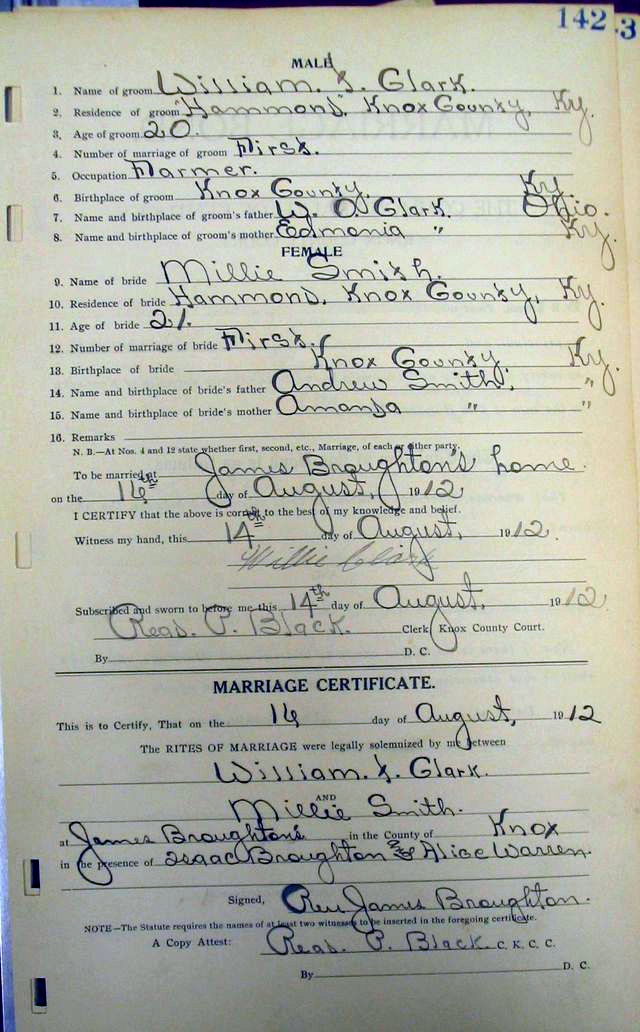 142.3
MALE
1. Name of groom William. J. Clark.
2. Residence of groom "Hammond". Knox County, Ky.
3. Age of groom 20.
4. Number of marriage of groom First.
5. Occupation Farmer.
6. Birthplace of groom Knox County, Ky.
7. Name and birthplace of groom's father W. O. Clark. Ohio.
8. Name and birthplace of groom's mother Edmonia " Ky.
FEMALE
9. Name of bride Millie Smith.
10. Residence of bride Hammond, Knox County, Ky.
11. Age of bride 21.
12. Number of marriage of bride First.
13. Birthplace of bride Knox County, Ky.
14. Name and birthplace of bride's father Andrew Smith, "
15. Name and birthplace of bride's mother Amanda " "
16. Remarks
N. B.—At Nos. 4 and 12 state whether first, second, etc., Marriage, of each or either party.
To be married at James Broughton's home.
on the 16th day of August, 1912
I CERTIFY that the above is correct to the best of my knowledge and belief.
Witness my hand, this 14th day of August, 1912.
Willie Clark
Subscribed and sworn to before me this 14th day of August, 1912
Reas. P. Black. Clerk Knox County Court.
By D. C.
MARRIAGE CERTIFICATE.
This is to Certify, That on the 16 day of August, 1912
The RITES OF MARRIAGE were legally solemnized by me between
William. J. Clark.
AND
Millie Smith.
at James Broughton's in the County of Knox
in the presence of Isaac Broughton & Alice Warren.
Signed, Rev James Broughton.
NOTE—The Statute requires the names of at least two witnesses to be inserted in the foregoing certificate.
A Copy Attest: Reas. P. Black C. K. C. C.
By D. C.